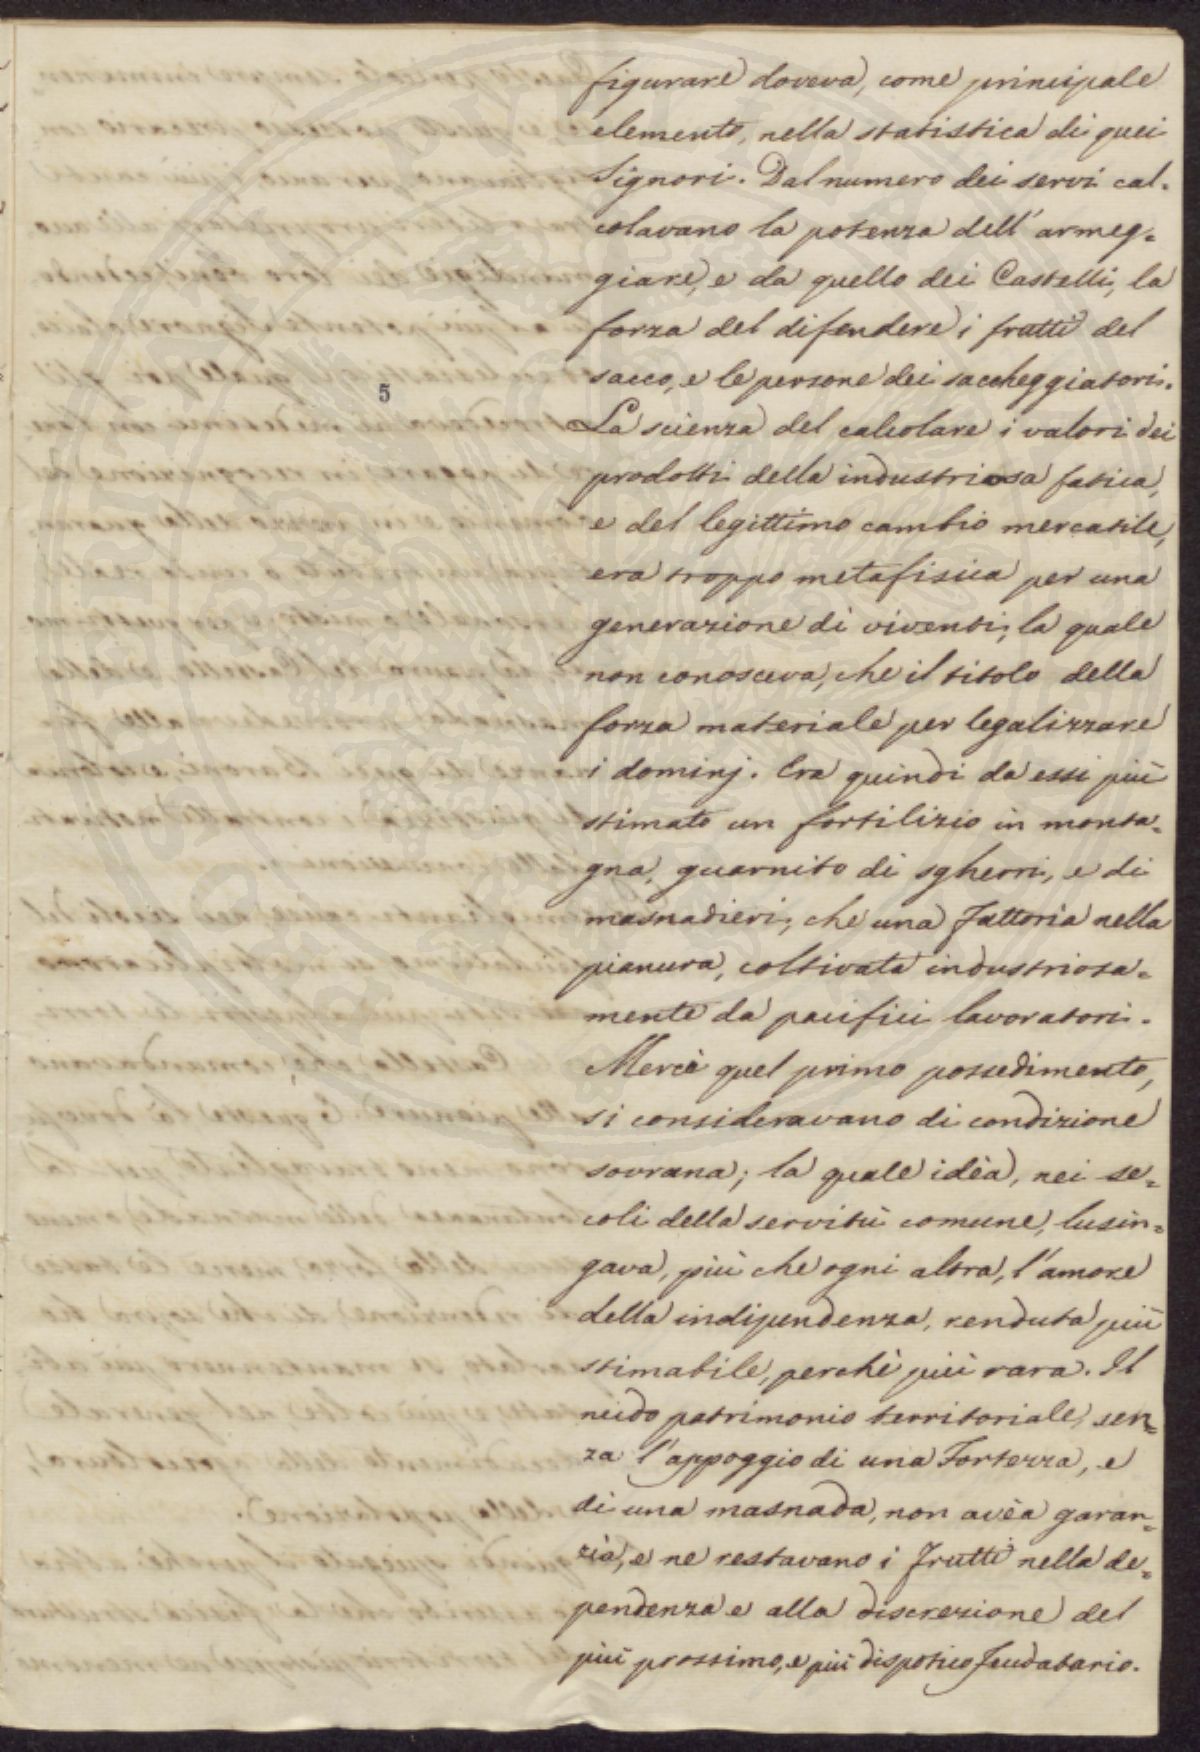 figurare doveva, come principale
elemento, nella statistica di quei
Signori. Dal numero dei servi cal=
colavano la potenza dell' armeg=
giare, e da quello dei Castelli, la
forza del difendere i frutti del
5
sacco, e le persone dei saccheggiatori.
La scienza del calcolare i valori dei
prodotti della industriosa fatica,
e del legittimo cambio mercatile,
era troppo metafisica per una
generazione di viventi, la quale
non conosceva, che il titolo della
forza materiale per legalizzare
i dominj. Era quindi da essi più
stimato un fortilizio in monta=
gna, guarnito di sgherri, e di
masnadieri, che una Fattoria nella
pianura, coltivata industriosa=
mente da pacifici lavoratori.
Mercè quel primo possedimento,
si consideravano di condizione
sovrana; la quale idèa, nei se=
coli della servitù comune, lusin=
gava, più che ogni altra, l'amore
della indipendenza, renduta più
stimabile, perchè più rara. Il
nudo patrimonio territoriale, sen=
za l'appoggio di una Fortezza, e
di una masnada, non avèa garan=
zia, e ne restavano i frutti nella de=
pendenza e alla discrezione del
più prossimo, e più dispotico feudatario.